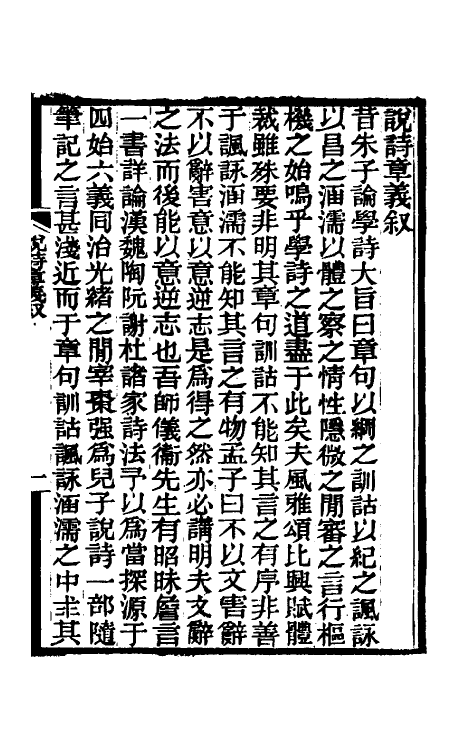 說詩章義叙
昔朱子論學詩大旨曰章句以綱之訓詁以紀之諷詠
以昌之涵濡以體之察之情性隱微之閒審之言行樞
機之始嗚乎學詩之道盡于此矣夫風雅頌比興賦體
裁雖殊要非明其章句訓詁不能知其言之有序非善
于諷詠涵濡不能知其言之有物孟子曰不以文害辭
不以辭害意以意逆志是爲得之然亦必講明夫文辭
之法而後能以意逆志也吾師儀衞先生有昭昧詹言
一書詳論漢魏陶阮謝杜諸家詩法予以爲當探源于
四始六義同治光緒之閒宰棗强爲兒子說詩一部隨
筆記之言甚淺近而于章句訓詁諷詠涵濡之中求其
說詩章義叙
一